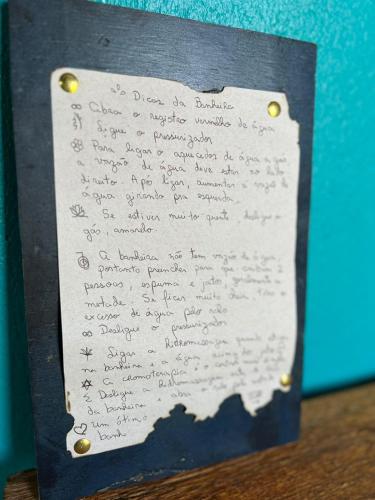 Dicas da Banheira
Abra o registro vermelho de água
Ligue o pressurizador
Para ligar o aquecedor de água a gás
a vazão de água deve estar no lado
direito. Após ligar, aumentar a vazão de
água girando pra esquerda.
Se estiver muito quente, desligue o
gás, amarelo.
A banheira não tem vazão de água,
portanto preencher para que
pessoas, espuma e jatos, geralmente a
metade. Se ficar muito cheia, tire o
excesso de água pelo ralo
Desligue o pressurizador
Ligar a Hidromassagem quando estiver
na banheira e a água acima dos
A cromoterapia é o
Desligue a Hidromassagem antes de
da banheira e abra o ralo pela
um ótimo
banho